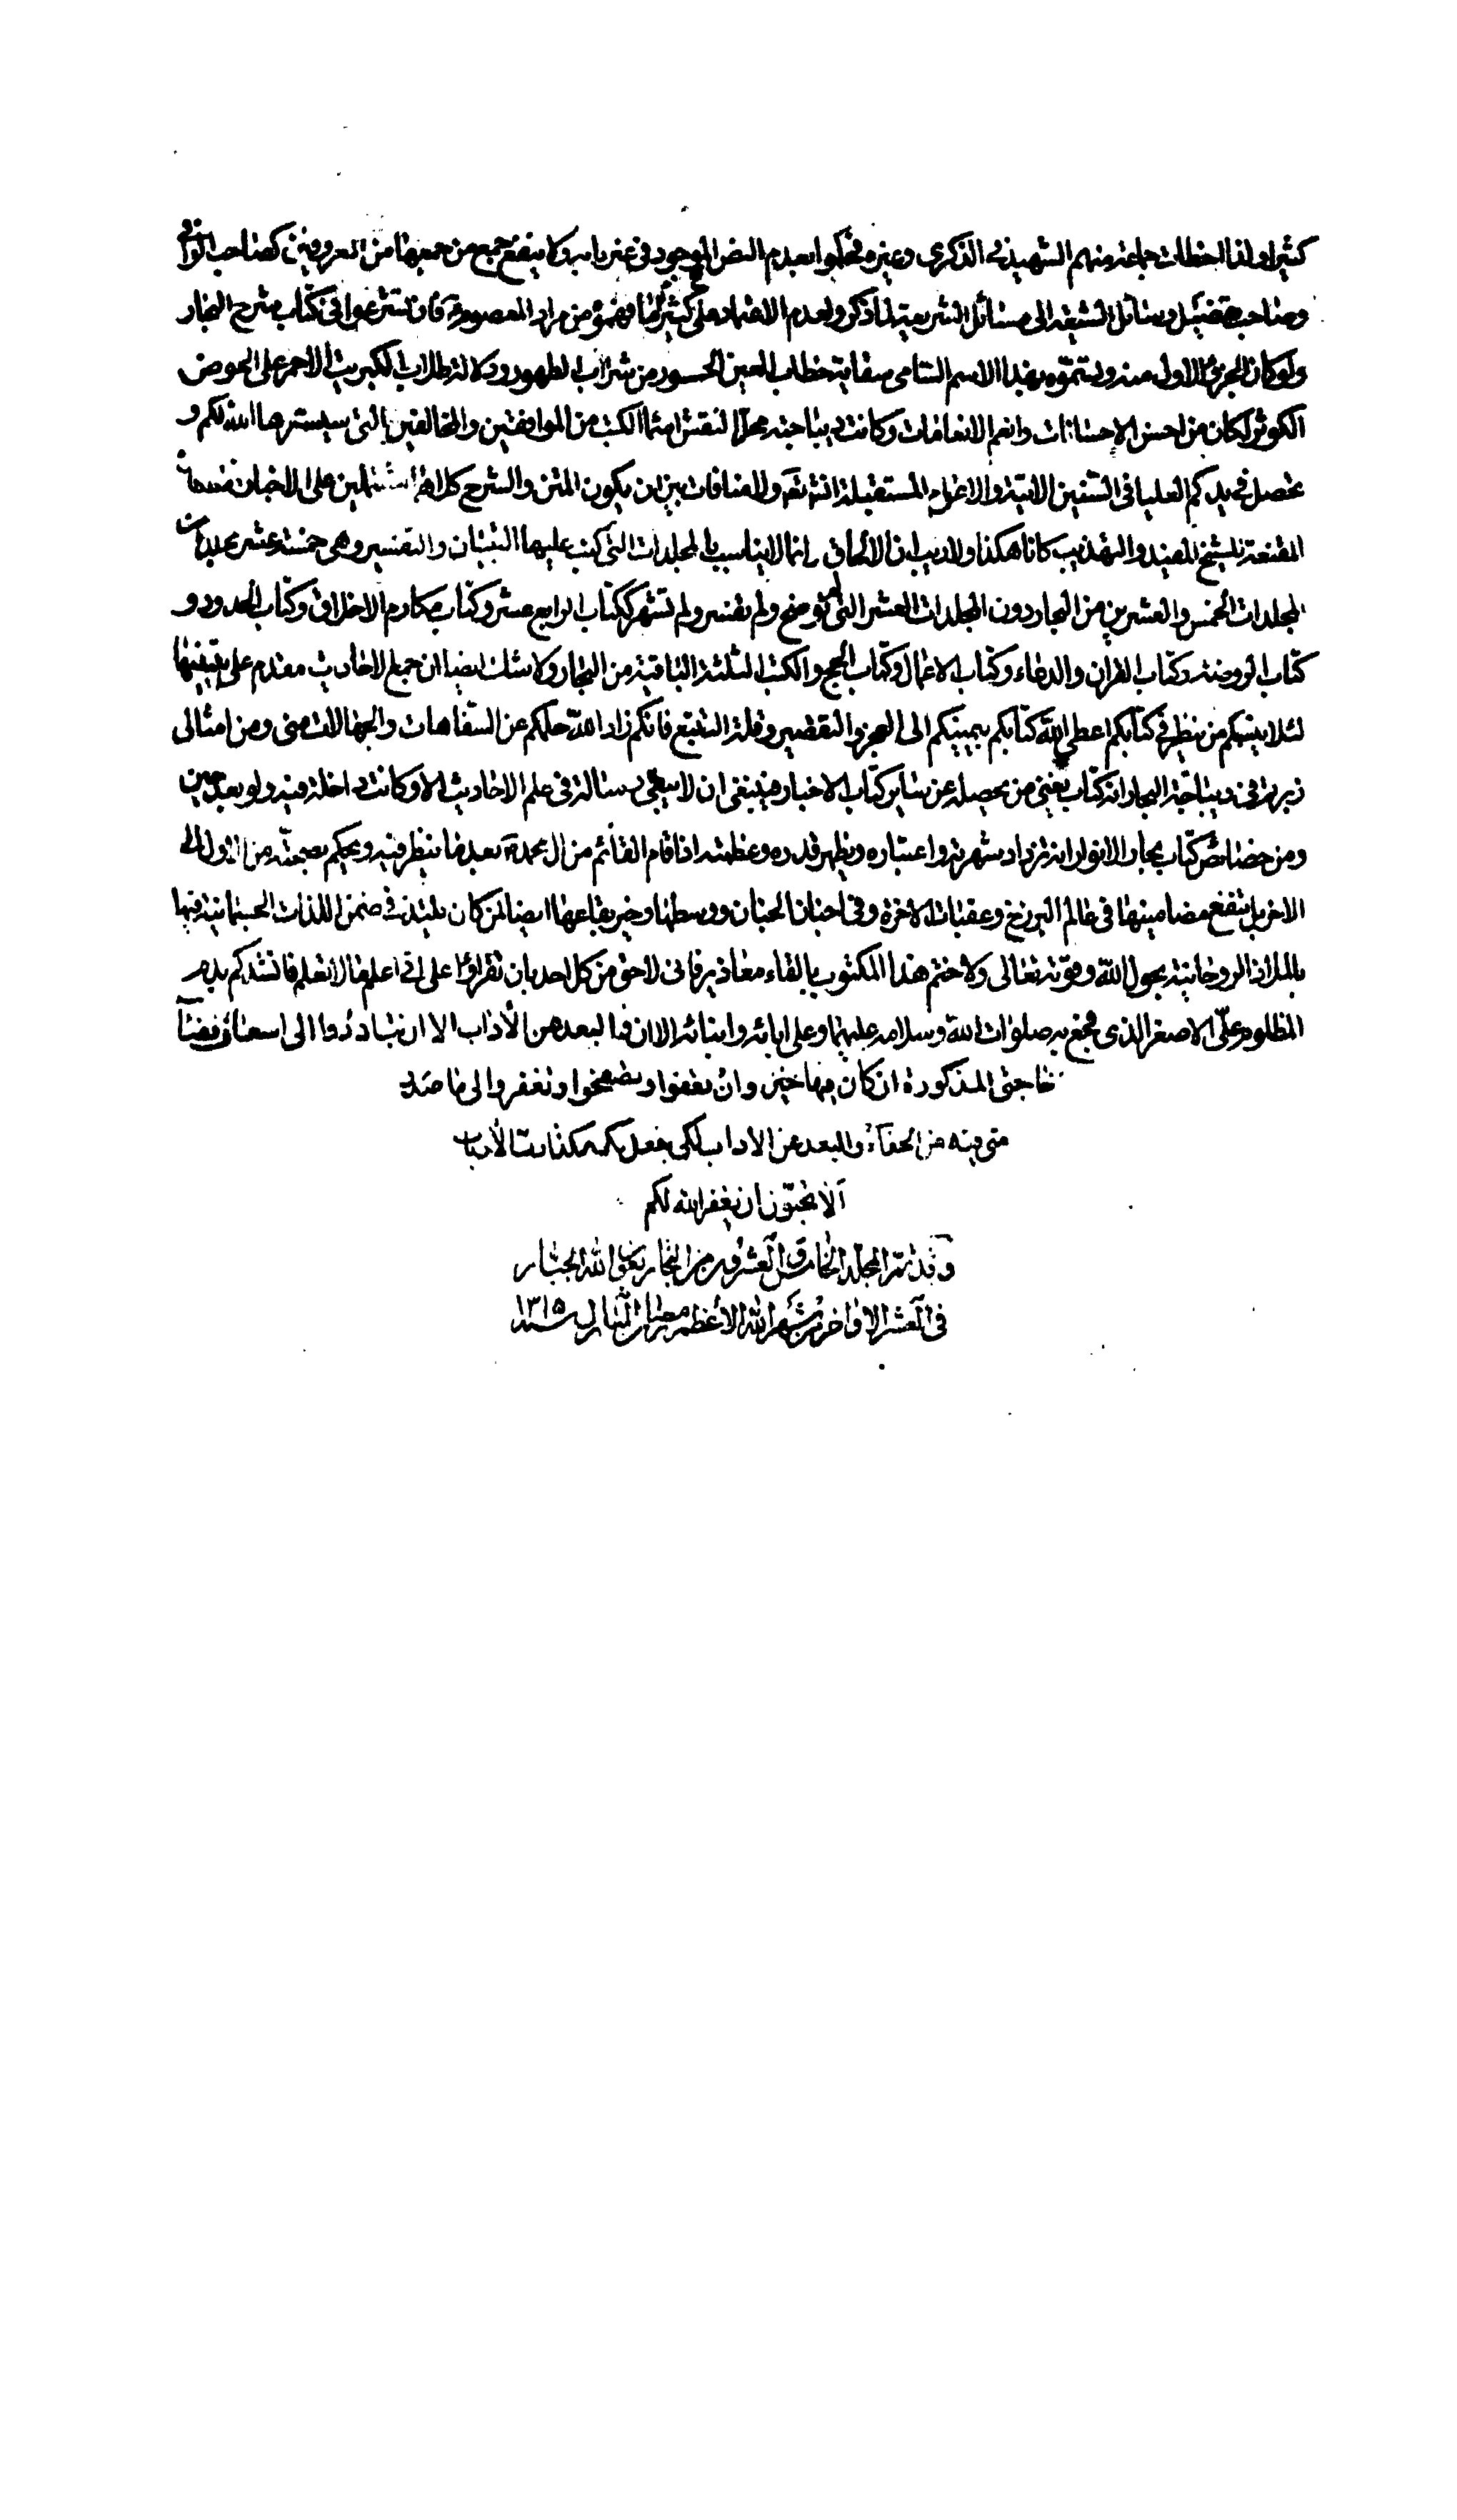 كثيرا ولذا الخطاب جماعة منهم الشهيد فى الذكرى وغيره فحكموا بعدم النص الموجود فى غير بابه ولا ينفع جمع من جمعها من المعروفين كصاحب الوافى
وصاحب تفصيل وسائل الشيعة الى مسائل الشريعة لما ذكر ولعدم الاعتماد على كثير مما فهموه من مراد المعصوم فان تشرعوا فى كتاب شرح البحار
ولو كان الجزئ الاول منه وتسموه بهذا الاسم السامى من شراب الطهور ودلالة طلاب الكبريت الاحمر على الحوض
الكوثر لكان من احسن الاحسانات وانعم الانعامات وكانت ديباجته محلا لنقش اسماء الكتب من الموافقين والمخالفين التى سيسترها الله لكم و
تحصل فى يدكم العليا فى السنين الاتية والاعوام المستقبلة انشاء الله تعالى ولا منافات بين ان يكون المتن والشرح كلاهما مشتملين على الاخبار
المقنعة للشيخ المفيد والتهذيب كانا هكذا ولا ريب ان الالحاق انما لا يناسب بالمجلدات التى كتب عليها التبيان والتفسير وهى خمسة عشر مجلدا من
المجلدات الخمس والعشرين من البحار دون المجلدات العشر التى لم توضح ولم تفسر ولم تشتهر ككتاب الرابع عشر وكتاب مكارم الاخلاق وكتاب الحدود و
كتاب الروضة وكتاب القران والدعاء وكتاب الاعمال وكتاب الحج والكتب الثلثة الباقية من البحار ولا شك ايضا ان جمع الاحاديث مقدم على تبيينها
لئلا ينسبكم من ينظر فى كتابكم اعطى الله كتابكم بيمينكم الى العجز والتقصير وقلة التتبع فانكم زاد الله حلمكم عن السفاهات والجهالات منى ومن امثالى
زبرتم فى ديباجة البحار انه كتاب يغنى من تحصيله عن سائر كتاب الاخبار فينبغى ان لا يبقى رسالة فى علم الاحاديث الا وكانت داخلة فيه ولو بعد حين
ومن خصائص كتاب بحار الانوار انه تزداد شهرته واعتباره ويظهر قدره وعظمته اذا قام القائم من ال محمد بعد ما ينظر فيه ويحكم بصحته من الاول الى
الاخر بل تنفع مضامينها فى عالم البرزخ وعقبات الاخرة وفى احنان الجنان ووسطها وخير بقاعها ايضا لمن كان يلتذ فى ضمن اللذات الجسمانية فيها
بالملاذ الروحانية بحول الله وقوته تعالى ولاختم هذا المكتوب بالقاء معاذير فانى لاحق من كل احد بان تقراوا على انى اعلم ما لا تعلم فانشدكم بدم
المظلوم على الاصغر الذى فجع به صلوات الله وسلامه عليهما وعلى ابائه وابنائه الا ان فما ابعد من الاداب الا ان تبادروا الى اسعاف
حاجتى المذكورة ان كان فيها خير وان تعفوا وتصفحوا وتغفروا لى ما صدر
منى فيه من الجفاء والبعد عن الاداب
ألا تحبون ان يغفر الله لكم
وقد تم المجلد الخامس والعشرون من البحار بعون الله الجبار
فى العشر الاواخر من شهر الله الاعظم رمضان المبارك سنة ١٣١٥